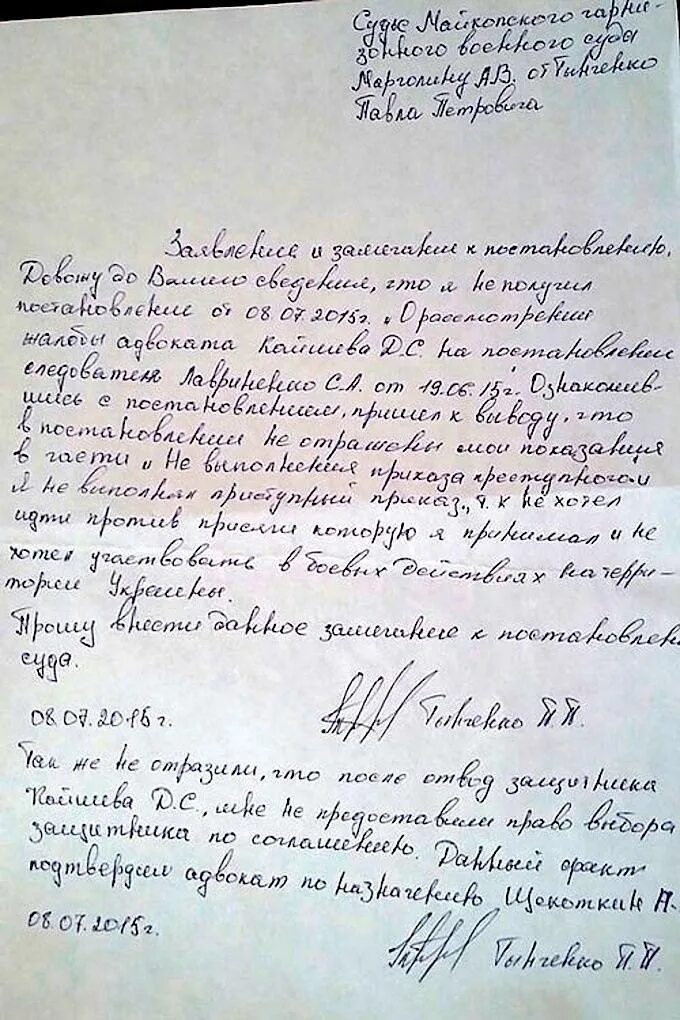 Судье Майкопского гарни-
зонного военного суда
Марголину А.В. от Тынченко
Павла Петровича
Заявление и замечание к постановлению.
Довожу до Вашего сведения, что я не получил
постановление от 08.07.2015г. „О рассмотрении
жалобы адвоката Кайшева Д.С. на постановление
следователя Лавриненко С.А. от 19.06.15г. Ознакомив-
шись с постановлением, пришел к выводу, что
в постановлении не отражены мои показания
в части „ Не выполнения приказа преступного"
Я не выполнял приступный приказ„ т.к не хотел
идти против присяги которую я принимал и не
хотел участвовать в боевых действиях на терри-
тории Украины.
Прошу внести данное замечание к постановлен
суда.
08.07.2015г. Тынченко П.П.
Так же не отразили, что после отвод защитника
Кайшева Д.С., мне не предоставили право выбора
защитника по соглашению. Данный факт
подтвердил адвокат по назначению Щекоткин А.
08.07.2015г. Тынченко П.П.